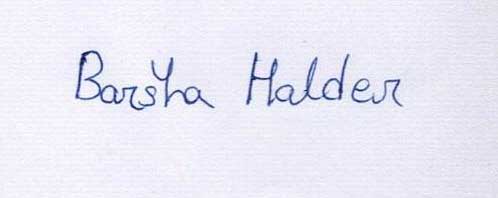 Barsha Halder